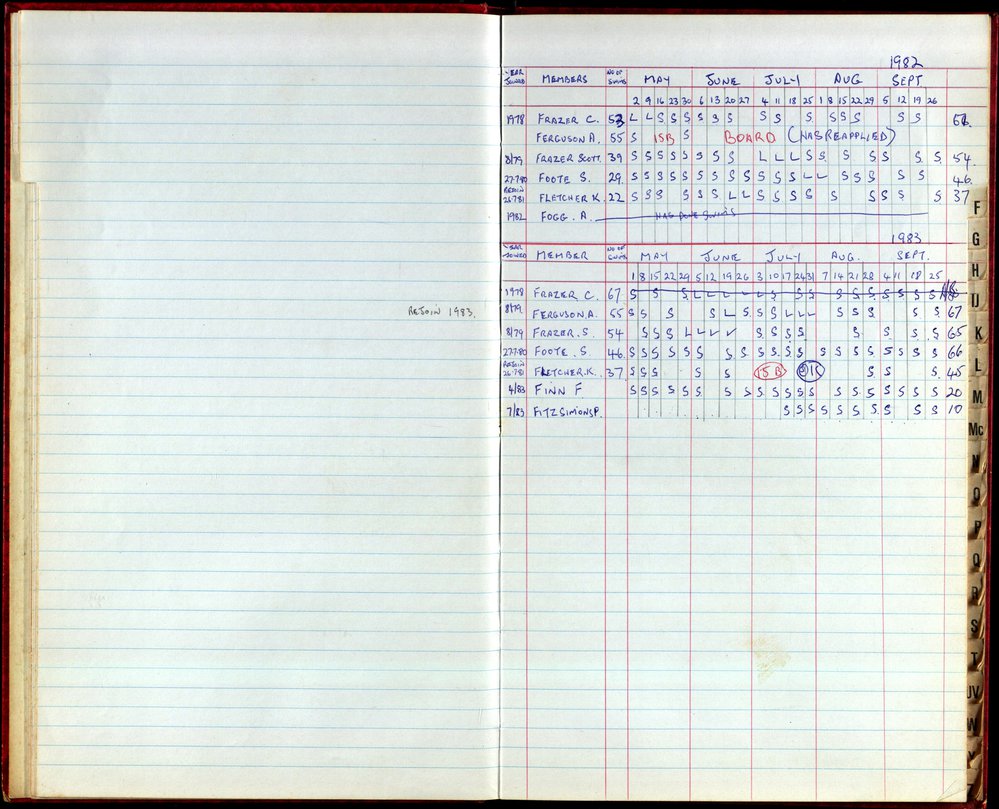 REJOIN 1983.
1982
YEAR JOINED MEMBERS NO OF SWIMS MAY JUNE JULY AUG SEPT
2 9 16 23 30 6 13 20 27 4 11 18 25 1 8 15 22 29 5 12 19 26
1978 FRAZER C. 53 L L S S S S S S S S S S S S S S
FERGUSON A. 55 S 15B S BOARD (HAS REAPPLIED)
8/79 FRAZER SCOTT. 39 S S S S S S S S S L L L S S S S S S S 54.
27-7-80 FOOTE S. 29. S S S S S S S S S S S S S L L S S S S S 46.
REJOIN 26-7-81 FLETCHER K. 22 S S S S S S L L S S S S S S S S S 37
1982 FOGG. A. HAS DONE SWIMS
1983
YEAR JOINED MEMBER NO OF SWIMS MAY JUNE JULY AUG. SEPT.
1 8 15 22 29 5 12 19 26 3 10 17 24 31 7 14 21 28 4 11 18 25
1978 FRAZER C. 67 S S S L L L L L S S S S S S S S S S
8/79 FERGUSON.A. 55 S S S S L S S S L L L S S S S S 67
8/79 FRAZER.S. 54 S S S L L L L S S S S S S S S 65
27-7-80 FOOTE.S. 46. S S S S S S S S S S S S S S S S S S S S 66
REJOIN 26-7-81 FLETCHER.K. 37. S S S S S 15 B S S S 45
4/83 FINN F S S S S S S S S S S S S S S S S S S S S 20
7/83 FITZSIMONS P. S S S S S S S S S S S 10
F
G
H
IJ
K
L
M
Mc
N
O
P
Q
R
S
T
UV
W